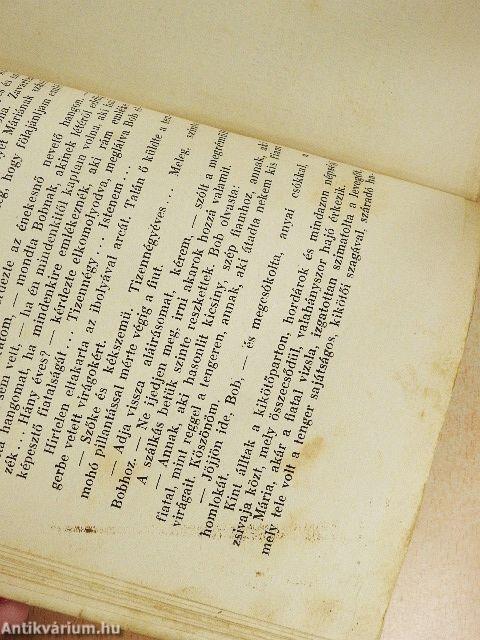 és ú
volna. Zavart
yét Máriának szán
eg, hogy fölajánljam emlé
érdezte az énekesnő nevető hangon,
ratom, — mondta Bobnak, akinek létéről eddi
sem vett, — ha én mindenkitől kaptam volna, aki kö
ta hangomat, ha mindenkire emlékeznék, aki rám emlé
zék... Hány éves? — kérdezte elkomolyodva, meglátva Bob
képesztő fiatalságát... Tizennégy... Istenem...
Hirtelen eltakarta az ibolyával arcát. Talán ő küldte a ten
gerbe vetett virágokért.
— Szőke és kékszemű. Tizennégyéves... Meleg, szinte
mohó pillantással mérte végig a fiut.
— Adja vissza aláírásomat, kérem, — szólt a megrémült
Bobhoz. — Ne ijedjen meg, irni akarok hozzá valamit.
A szálkás betük szinte reszkettek. Bob olvasta:
— Annak, aki hasonlit kicsiny, szép fiamhoz, annak, aki
fiatal, mint reggel a tengeren, annak, aki átadta nekem kis fiam
virágait. Köszönöm.
— Jöjjön ide, Bob, — és megcsókolta, anyai csókkal, a
homlokát.
Kint álltak a kikötőparton, hordárok és mindazon népség
zsivaja közt, mely összecsődűl, valahányszor hajó érkezik.
Mária, akár a fiatal vizsla, izgatottan szimatolta a levegőt,
mely tele volt a tenger sajátságos, kikötői szagával, száradó ha-
Antikvárium.hu